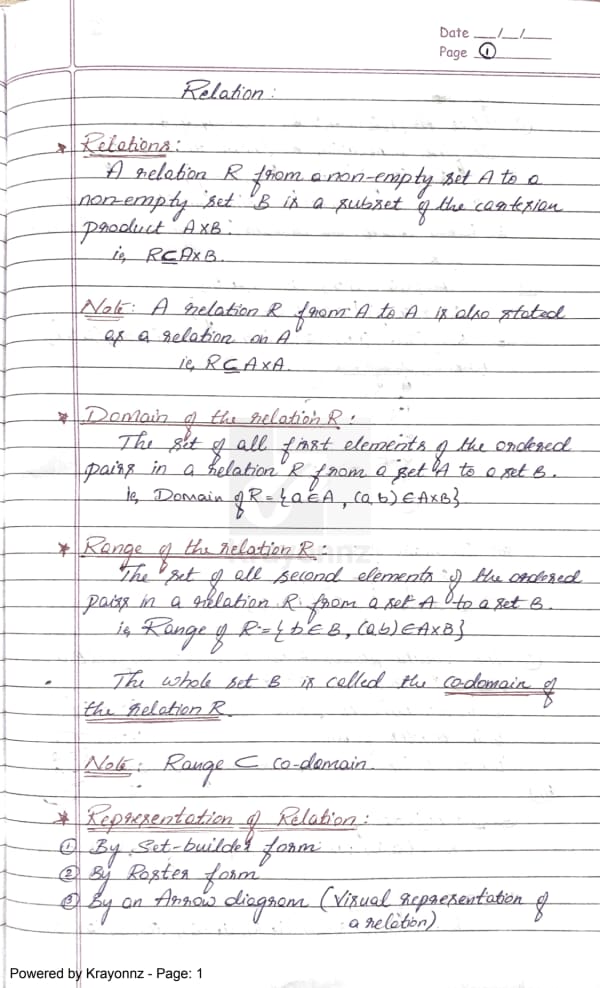 Date __/__/__
Page ①
Relation :
* Relations :
A relation R from a non-empty set A to a
non-empty set B is a subset of the cartesian
product A×B.
ie, R⊆A×B.
Note: A relation R from A to A is also stated
as a relation on A
ie, R⊆A×A.
* Domain of the relation R :
The set of all first elements of the ordered
pairs in a relation R from a set A to a set B.
ie, Domain of R = {a∈A, (a,b)∈A×B}
* Range of the relation R :
The set of all second elements of the ordered
pairs in a relation R from a set A to a set B.
ie, Range of R = {b∈B, (a,b)∈A×B}
• The whole set B is called the co-domain of
the relation R.
Note: Range ⊂ co-domain.
* Representation of Relation :
① By Set-builder form
② By Roster form
③ By an Arrow diagram (Visual representation of
a relation)
Krayonnz
Powered by Krayonnz - Page: 1